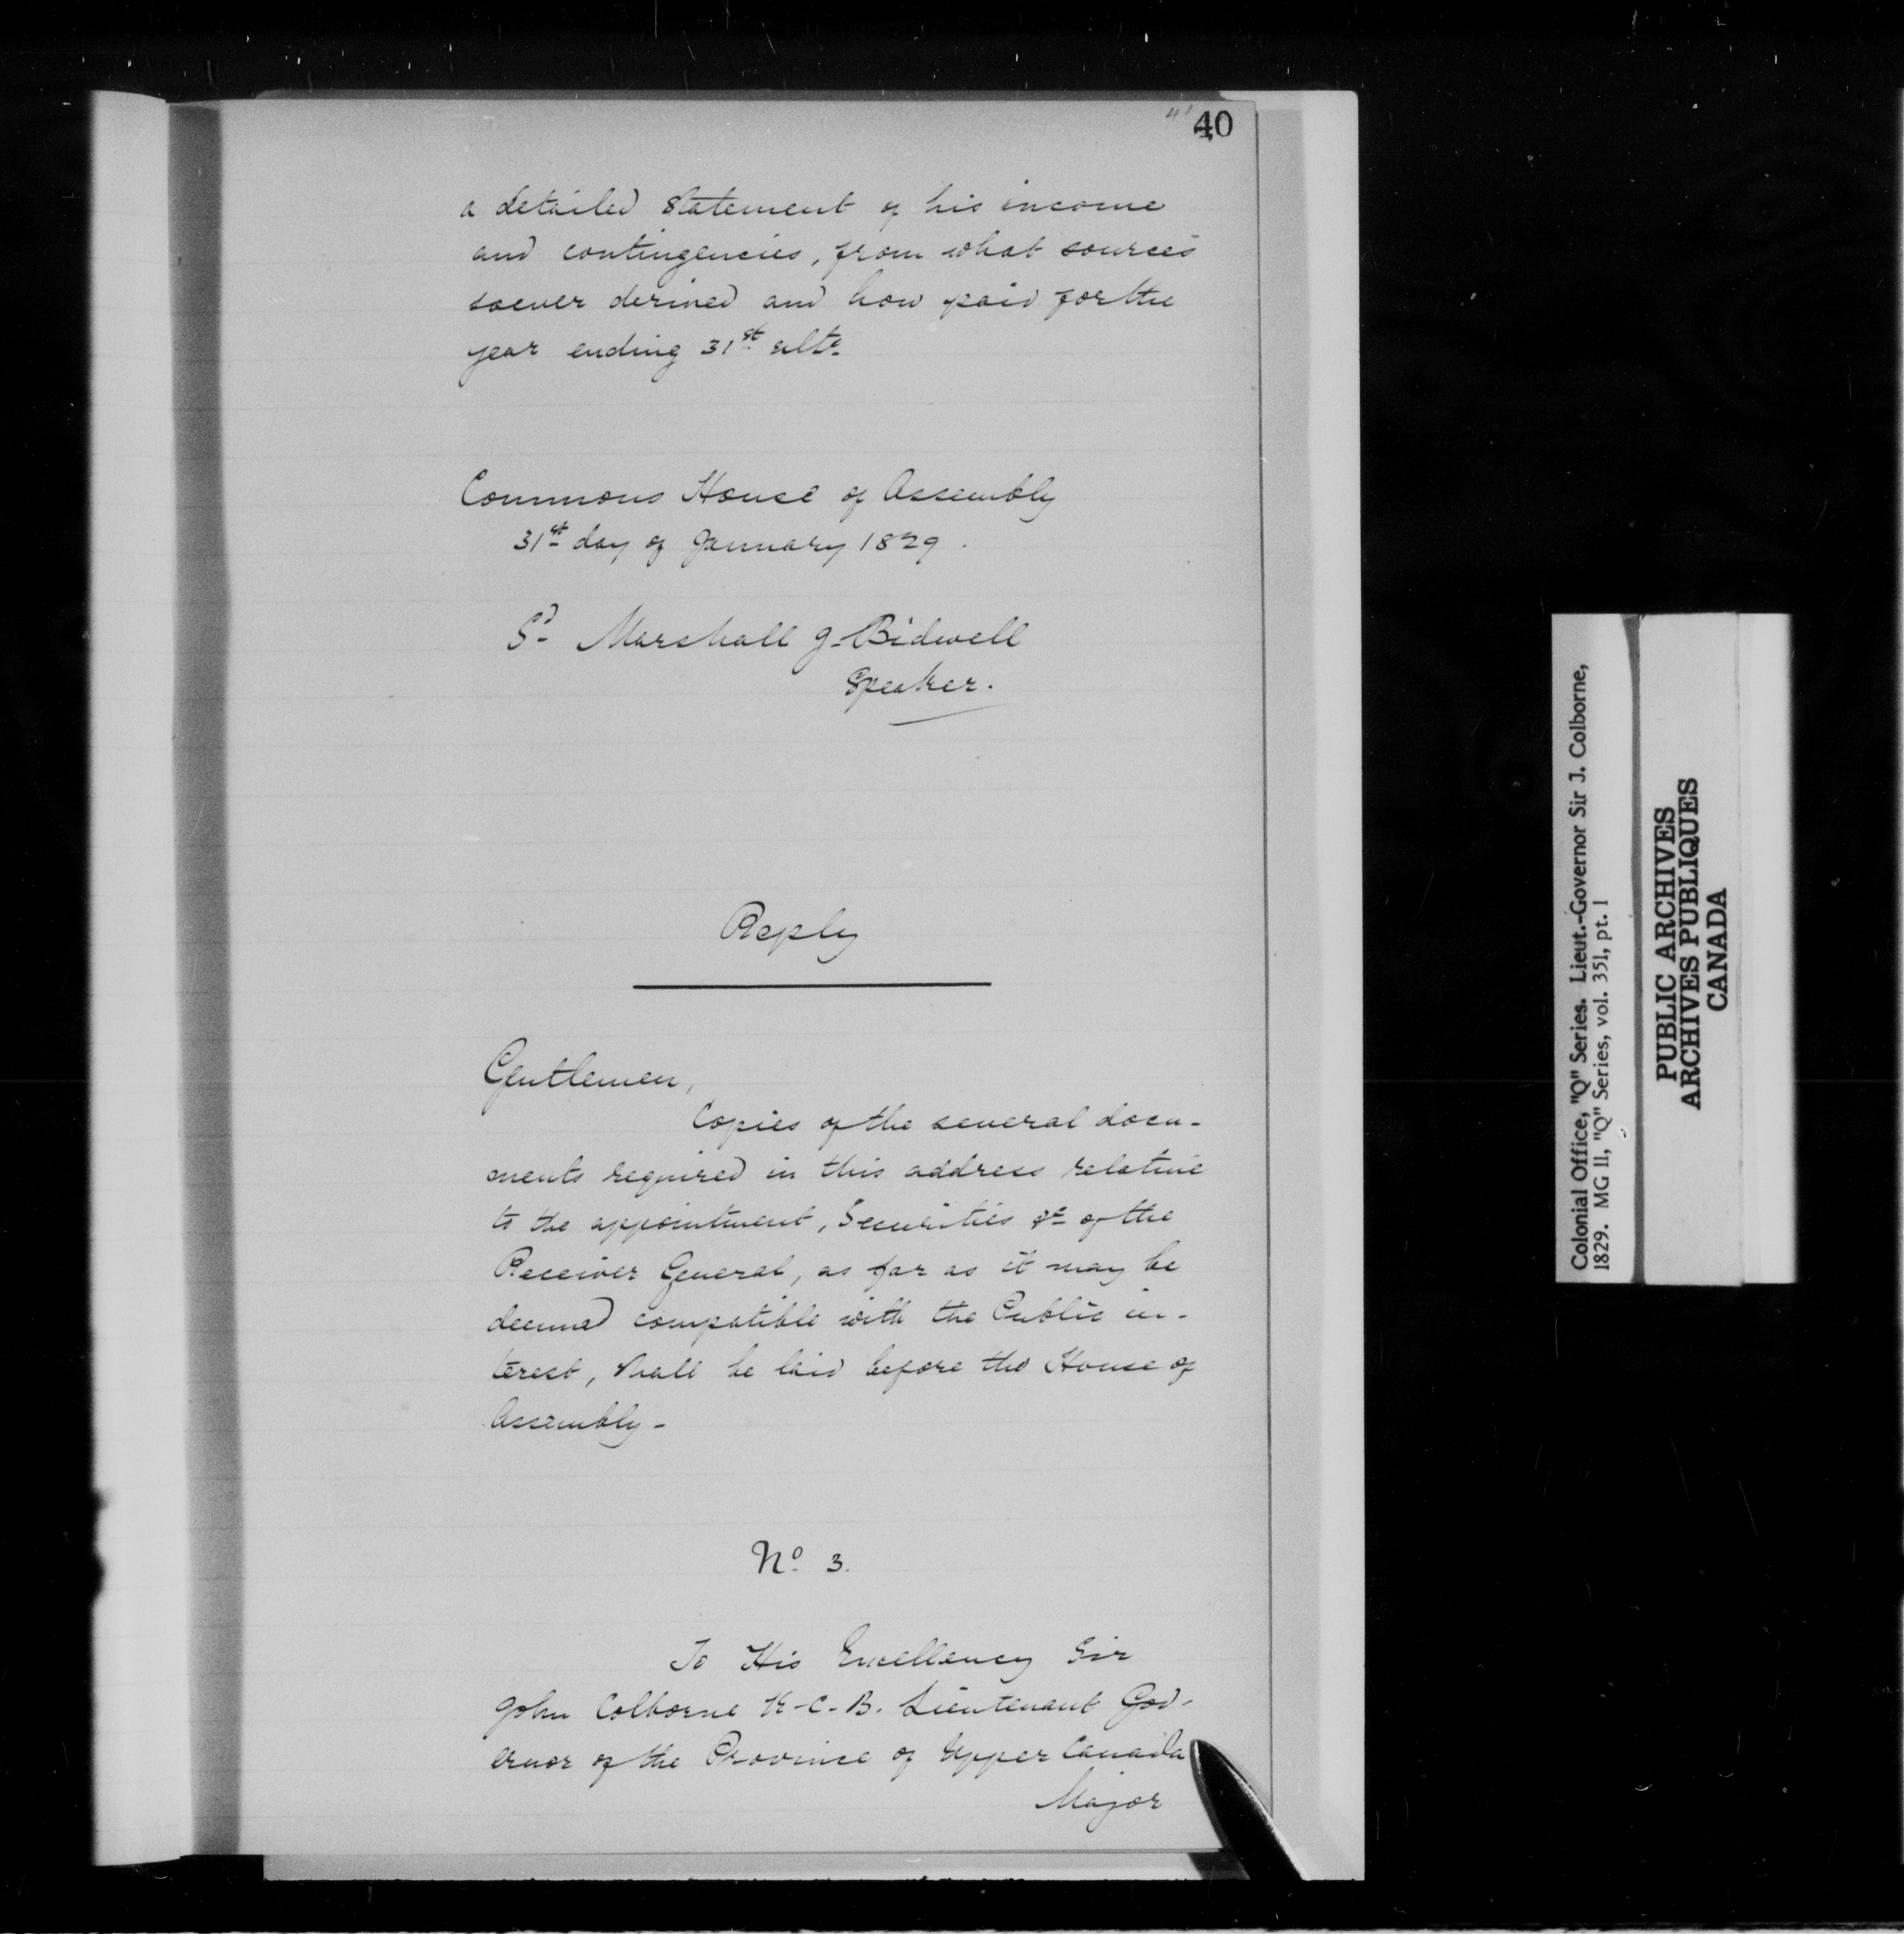 40
a detailed statement of his income
and contingencies, from what sources
soever derived and how paid for the
year ending 31st ulto.
Commons House of Assembly
31st day of January 1829.
Sd Marshall J. Bidwell
Speaker.
Reply
Gentlemen,
Copies of the several docu-
ments required in this address relative
to the appointment, Securities &c of the
Receiver General, as far as it may be
deemed compatible with the Public in-
terest, shall be laid before the House of
Assembly-
No. 3.
To His Excellency Sir
John Colborne K.C.B. Lieutenant Gov-
ernor of the Province of Upper Canada
Major
Colonial Office, "Q" Series. Lieut.-Governor Sir J. Colborne,
1829. MG 11, "Q" Series, vol. 351, pt. 1
PUBLIC ARCHIVES
ARCHIVES PUBLIQUES
CANADA